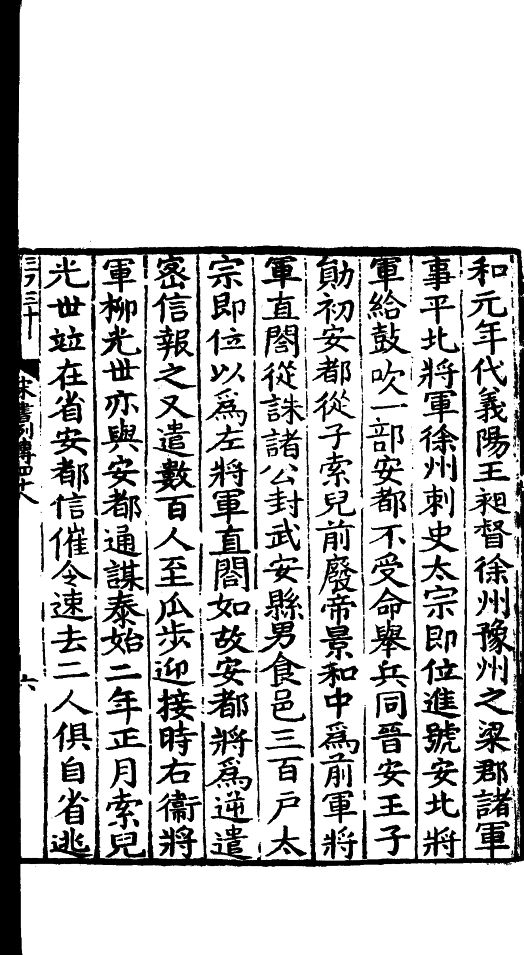 和元年代義陽王昶督徐州豫州之梁郡諸軍
事平北將軍徐州刺史太宗即位進號安北將
軍給鼓吹一部安都不受命舉兵同晉安王子
勛初安都從子索兒前廢帝景和中爲前軍將
軍直閤從誅諸公封武安縣男食邑三百戶太
宗即位以爲左將軍直閤如故安都將爲逆遣
密信報之又遣數百人至瓜步迎接時右衞將
軍柳光世亦與安都通謀泰始二年正月索兒
光世竝在省安都信催令速去二人俱自省逃
宋書列傳四十八
六